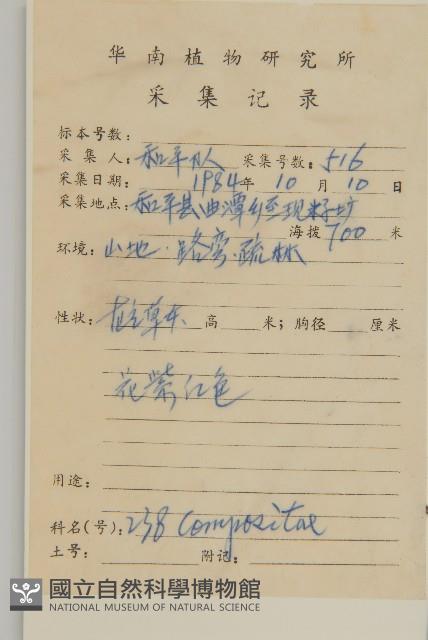 华南植物研究所
采集记录
标本号数：
采集人：和平队 采集号数：516
采集日期： 1984年 10月 10日
采集地点：和平县曲潭
海拨 700 米
环境：山地·路旁·疏林
性状：直立草本 高 米；胸径 厘米
花紫红色
用途：
科名（号）：238 Compositae
土号： 附记：
國立自然科學博物館
NATIONAL MUSEUM OF NATURAL SCIENCE